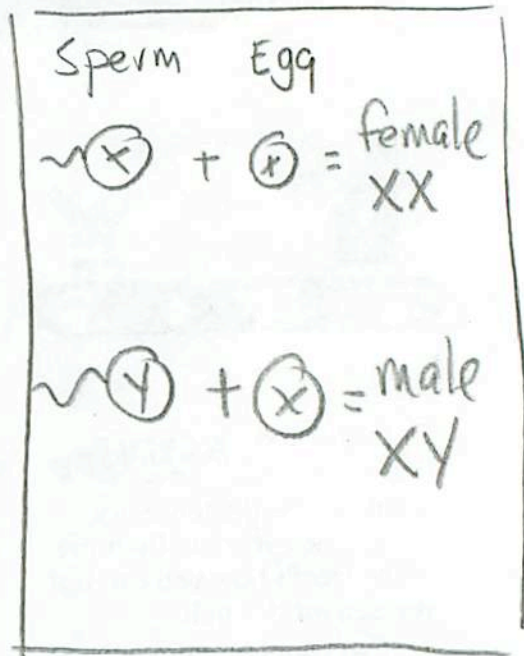 Sperm Egg
X + X = female
XX
Y + X = male
XY